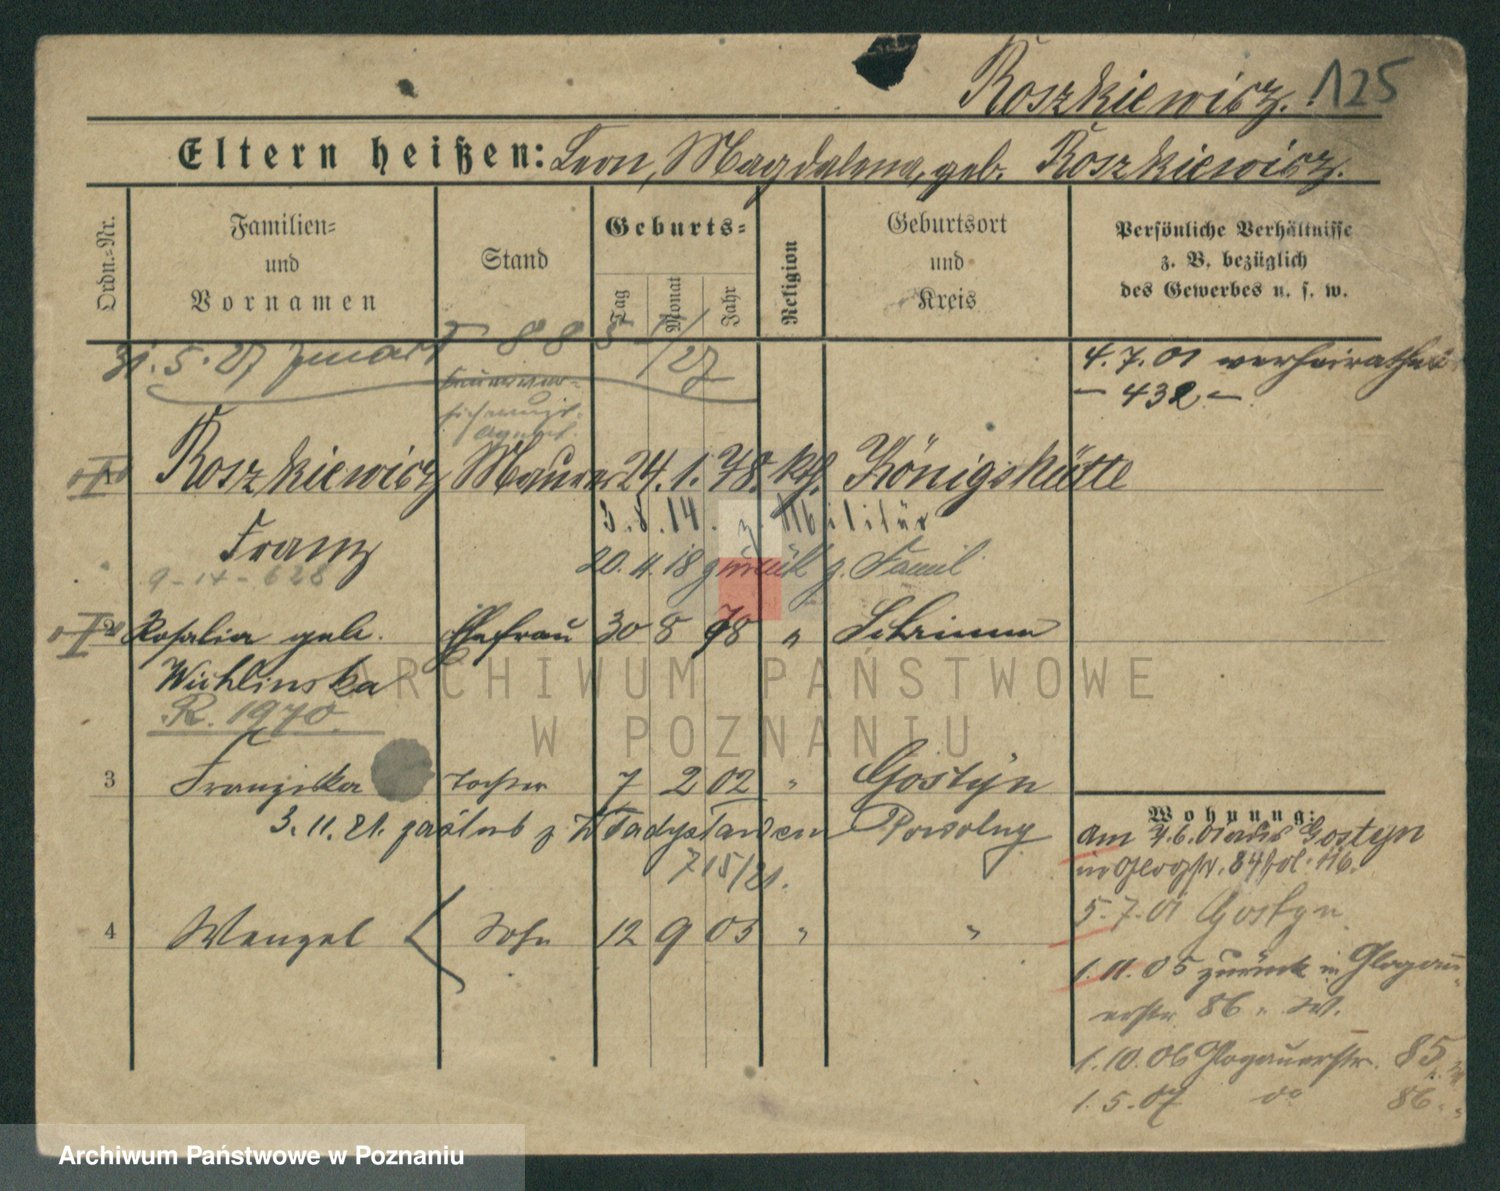 Roszkiewicz. 125
Eltern heißen: Leon, Magdalena, geb. Roszkiewicz.
Ordn.-Nr.
Familien- und Vornamen
Stand
Geburts-
Tag
Monat
Jahr
Religion
Geburtsort und Kreis
Persönliche Verhältnisse
z. B. bezüglich
des Gewerbes u. s. w.
31. 5. 27 zmarł 885/27
4. 7. 01 verheirathet
- 432 -
Roszkiewicz Maurer 24. 1. 78. kth. Königshütte
3. 8. 14. z. Militär
Franz
20. 11. 18 zurück z. Famil
9-14-628
2 Rosalia geb. Ehefrau 30 8 78 " Schrimm
Wichlinska
R. 1970.
3 Franziska Tochter 7 2 02 " Gostyn
3. 11. 21. zaślub z Władysławem Powolny
715/21.
4 Wenzel Sohn 12 9 05 " "
Wohnung:
am 4. 6. 01 aus Gostyn
5. 7. 01 Gostyn
1. 11. 05 zurück in Glogau
erstr 86
1. 10. 06 Glogauerstr. 85
1. 5. 07 do 86
ARCHIWUM PAŃSTWOWE
W POZNANIU
Archiwum Państwowe w Poznaniu